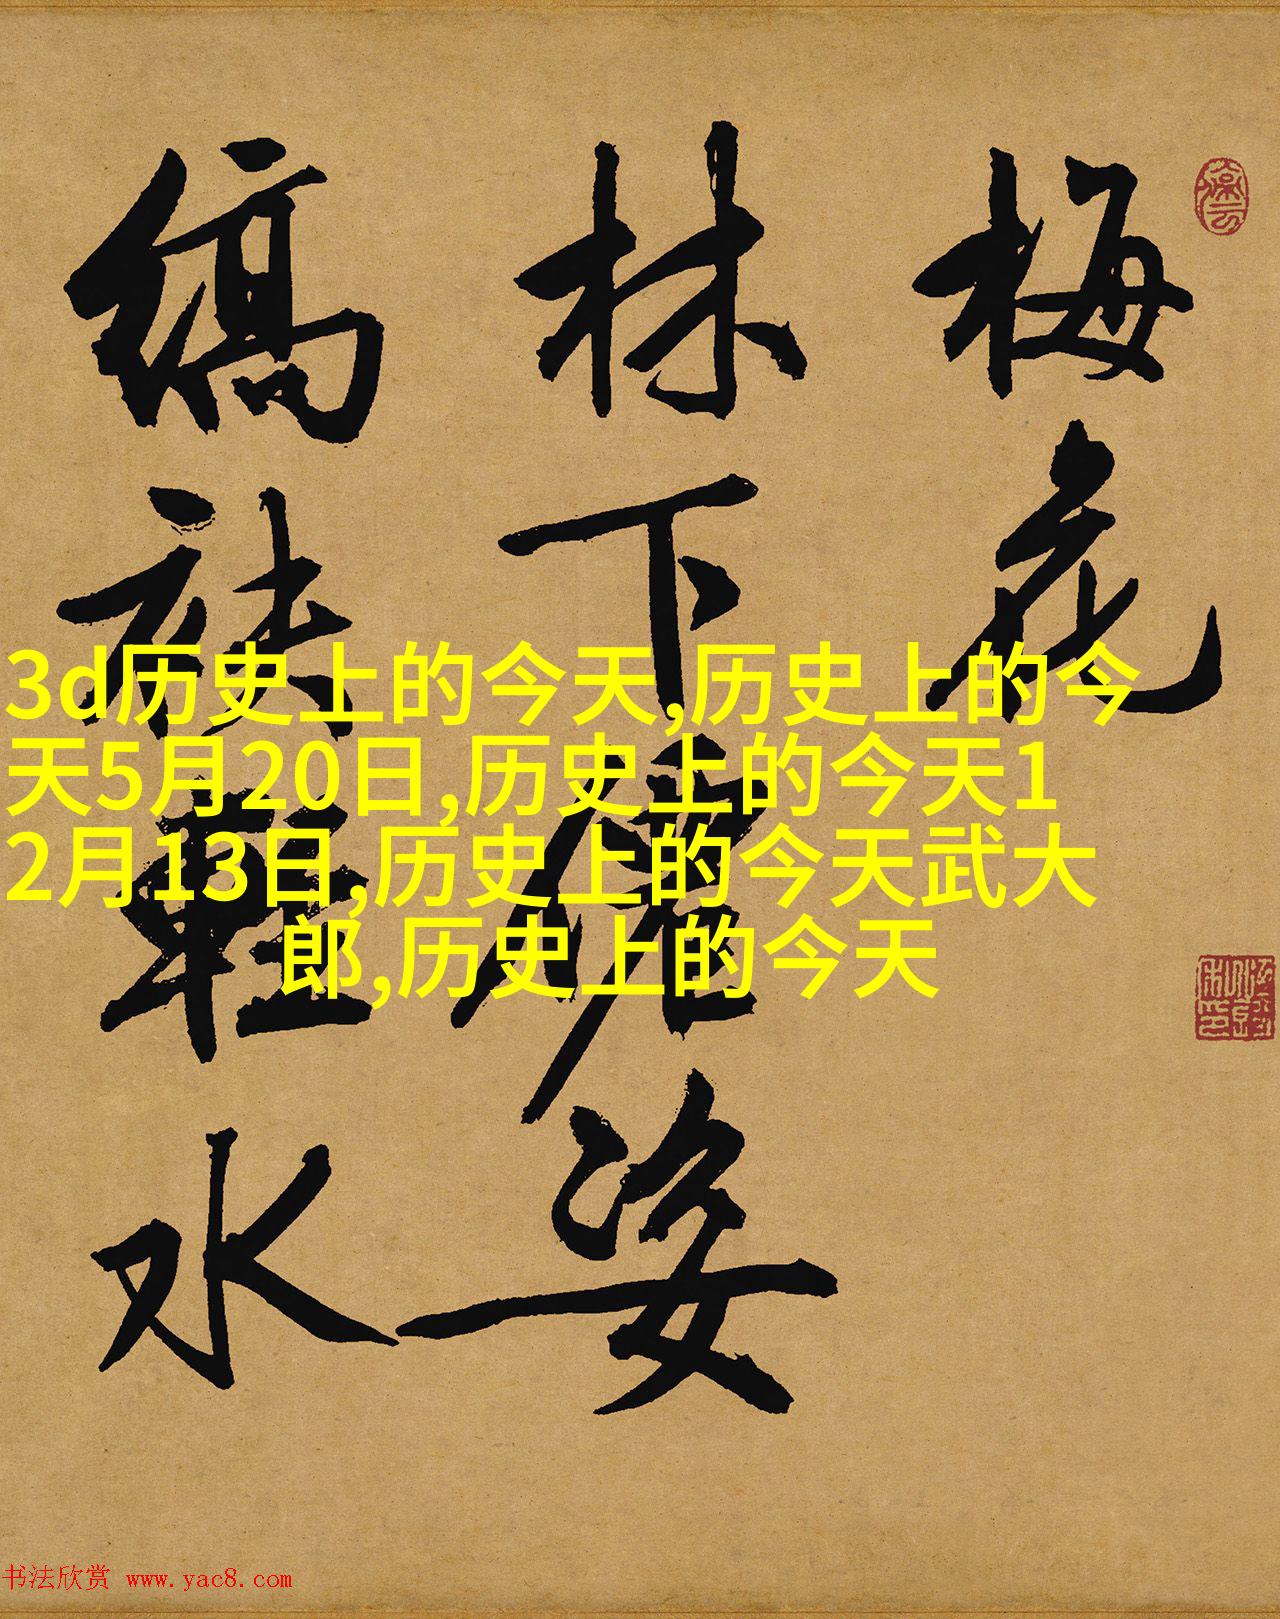 梅花
林下姿
縞袂輕水
3d历史上的今天,历史上的今
天5月20日,历史上的今天1
2月13日,历史上的今天武大
郎,历史上的今天
书法欣赏 www.yac8.com